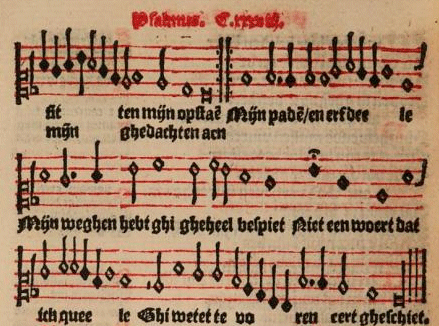 Psalmus. C.xxxviij.
sit ten mijn opstaē Mijn padē/en erfdee le
mijn ghedachten aen
Mijn weghen hebt ghi gheheel bespiet Niet een woert dat
ick quee le Ghi wetet te vo ren eert gheschiet.